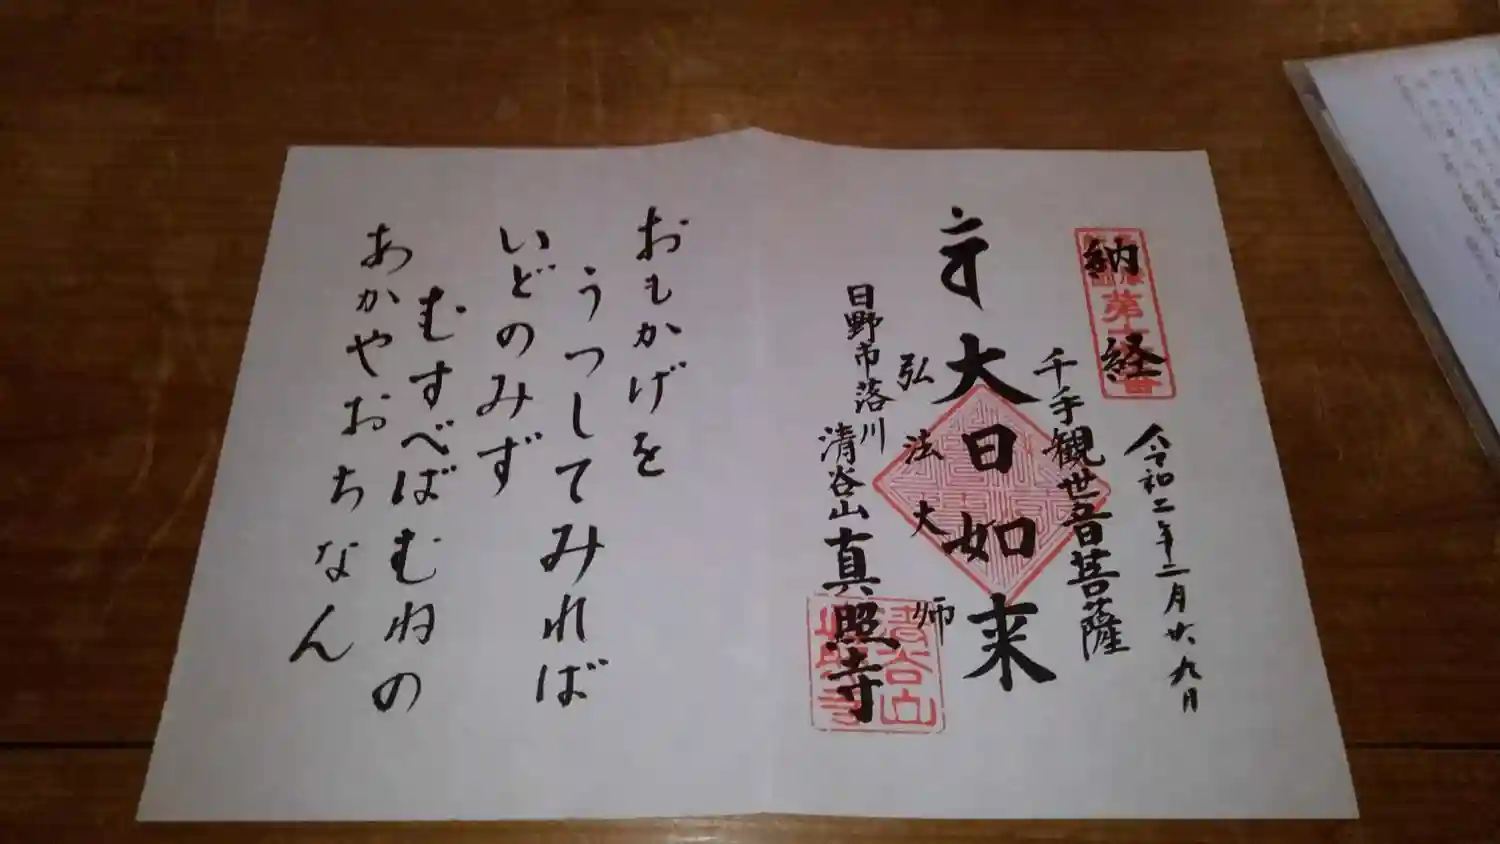 令和二年二月廿九日
納経
千手観世音菩薩
大日如来
弘法大師
日野市落川
清谷山真照寺
おもかげを
うつしてみれば
いどのみず
むすべばむねの
あかやおちなん